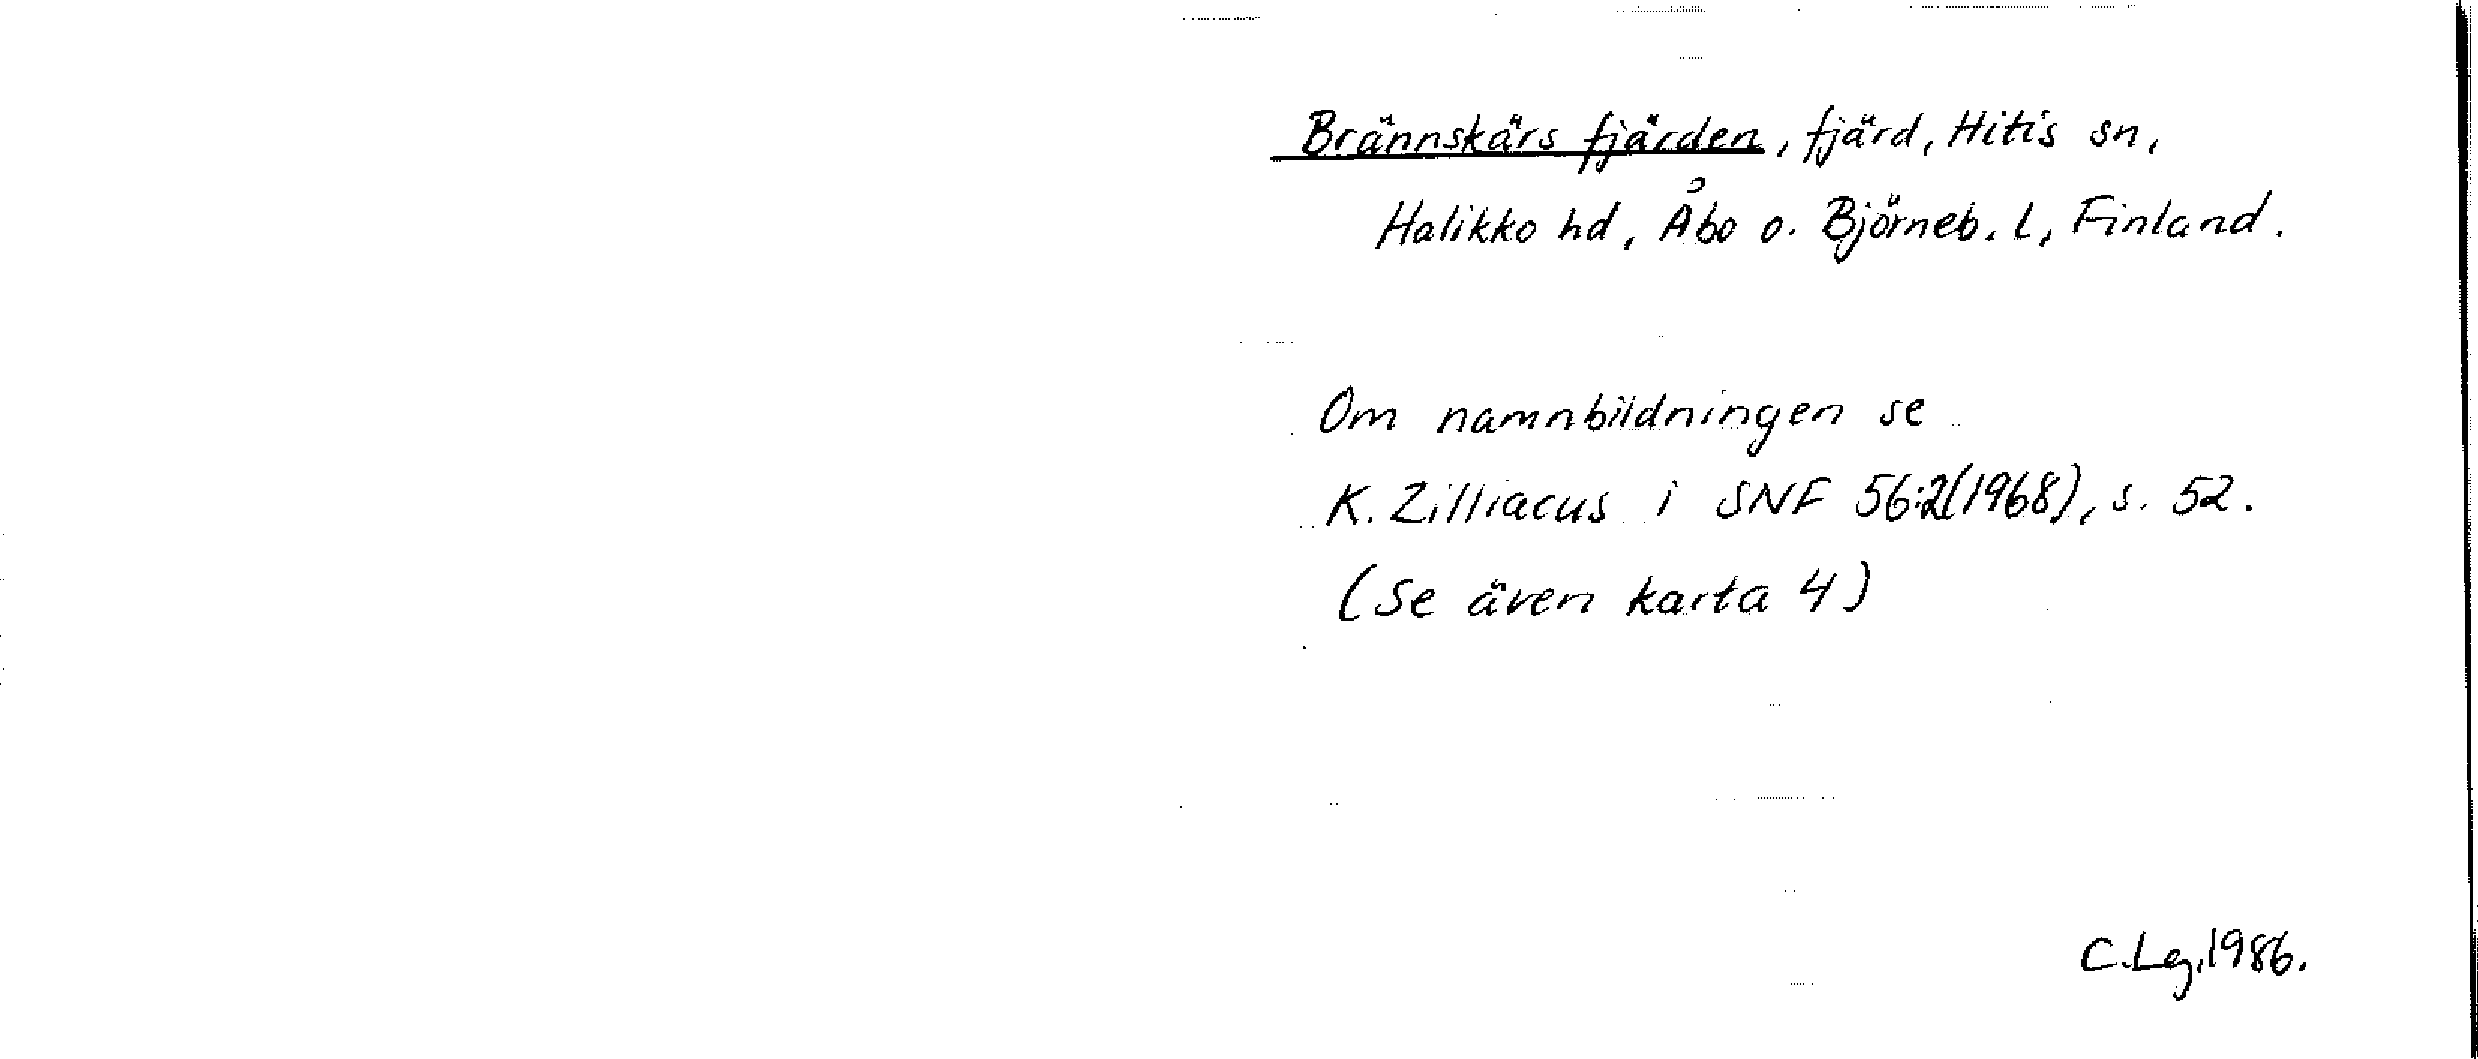 Brännskärs fjärden, fjärd, Hitis sn,
Halikko hd, Åbo o. Björneb. l, Finland.
Om namnbildningen se
K. Zilliacus i SNF 56:2(1968), s. 52.
(Se även karta 4)
C.Lg.1986.